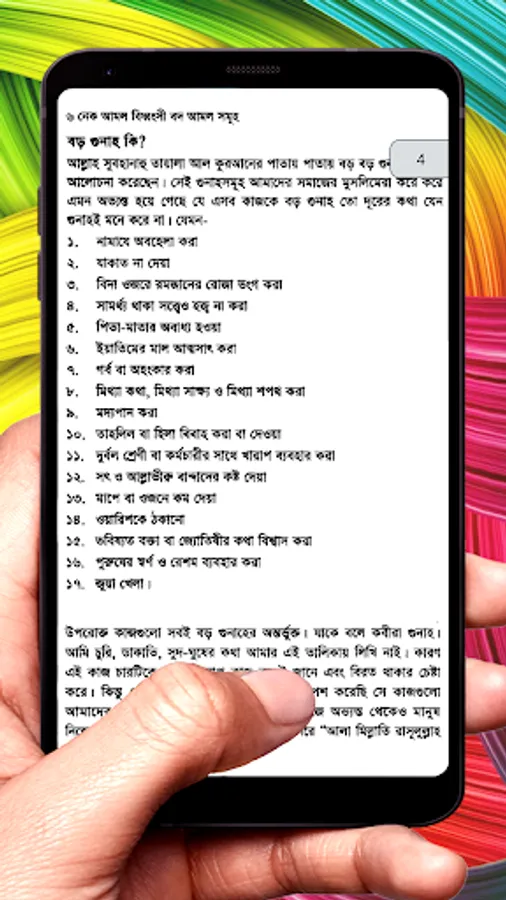 ৬ নেক আমল বিধ্বংসী বদ আমল সমূহ
বড় গুনাহ কি?
4
আল্লাহ সুবহানাহু তায়ালা আল কুরআনের পাতায় পাতায় বড় বড়
আলোচনা করেছেন। সেই গুনাহসমূহ আমাদের সমাজের মুসলিমেরা করে করে
এমন অভ্যস্ত হয়ে গেছে যে এসব কাজকে বড় গুনাহ তো দূরের কথা যেন
গুনাহই মনে করে না। যেমন-
১. নামাযে অবহেলা করা
২. যাকাত না দেয়া
৩. বিনা ওজরে রমজানের রোজা ভংগ করা
৪. সামর্থ্য থাকা সত্ত্বেও হজ্ব না করা
৫. পিতা-মাতার অবাধ্য হওয়া
৬. ইয়াতিমের মাল আত্মসাৎ করা
৭. গর্ব বা অহংকার করা
৮. মিথ্যা কথা, মিথ্যা সাক্ষ্য ও মিথ্যা শপথ করা
৯. মদ্যপান করা
১০. তাহলিল বা হিলা বিবাহ করা বা দেওয়া
১১. দুর্বল শ্রেণী বা কর্মচারীর সাথে খারাপ ব্যবহার করা
১২. সৎ ও আল্লাভীরু বান্দাদের কষ্ট দেয়া
১৩. মাপে বা ওজনে কম দেয়া
১৪. ওয়ারিশকে ঠকানো
১৫. ভবিষ্যত বক্তা বা জ্যোতিষীর কথা বিশ্বাস করা
১৬. পুরুষের স্বর্ণ ও রেশম ব্যবহার করা
১৭. জুয়া খেলা।
উপরোক্ত কাজগুলো সবই বড় গুনাহের অন্তর্ভুক্ত। যাকে বলে কবীরা গুনাহ।
আমি চুরি, ডাকাতি, সুদ-ঘুষের কথা আমার এই তালিকায় লিখি নাই। কারণ
এই কাজ চারটিকে জানে এবং বিরত থাকার চেষ্টা
করে। কিন্তু করেছি সে কাজগুলো
আমাদের অভ্যস্ত থেকেও মানুষ
“আলা মিল্লাতি রাসূলুল্লাহ